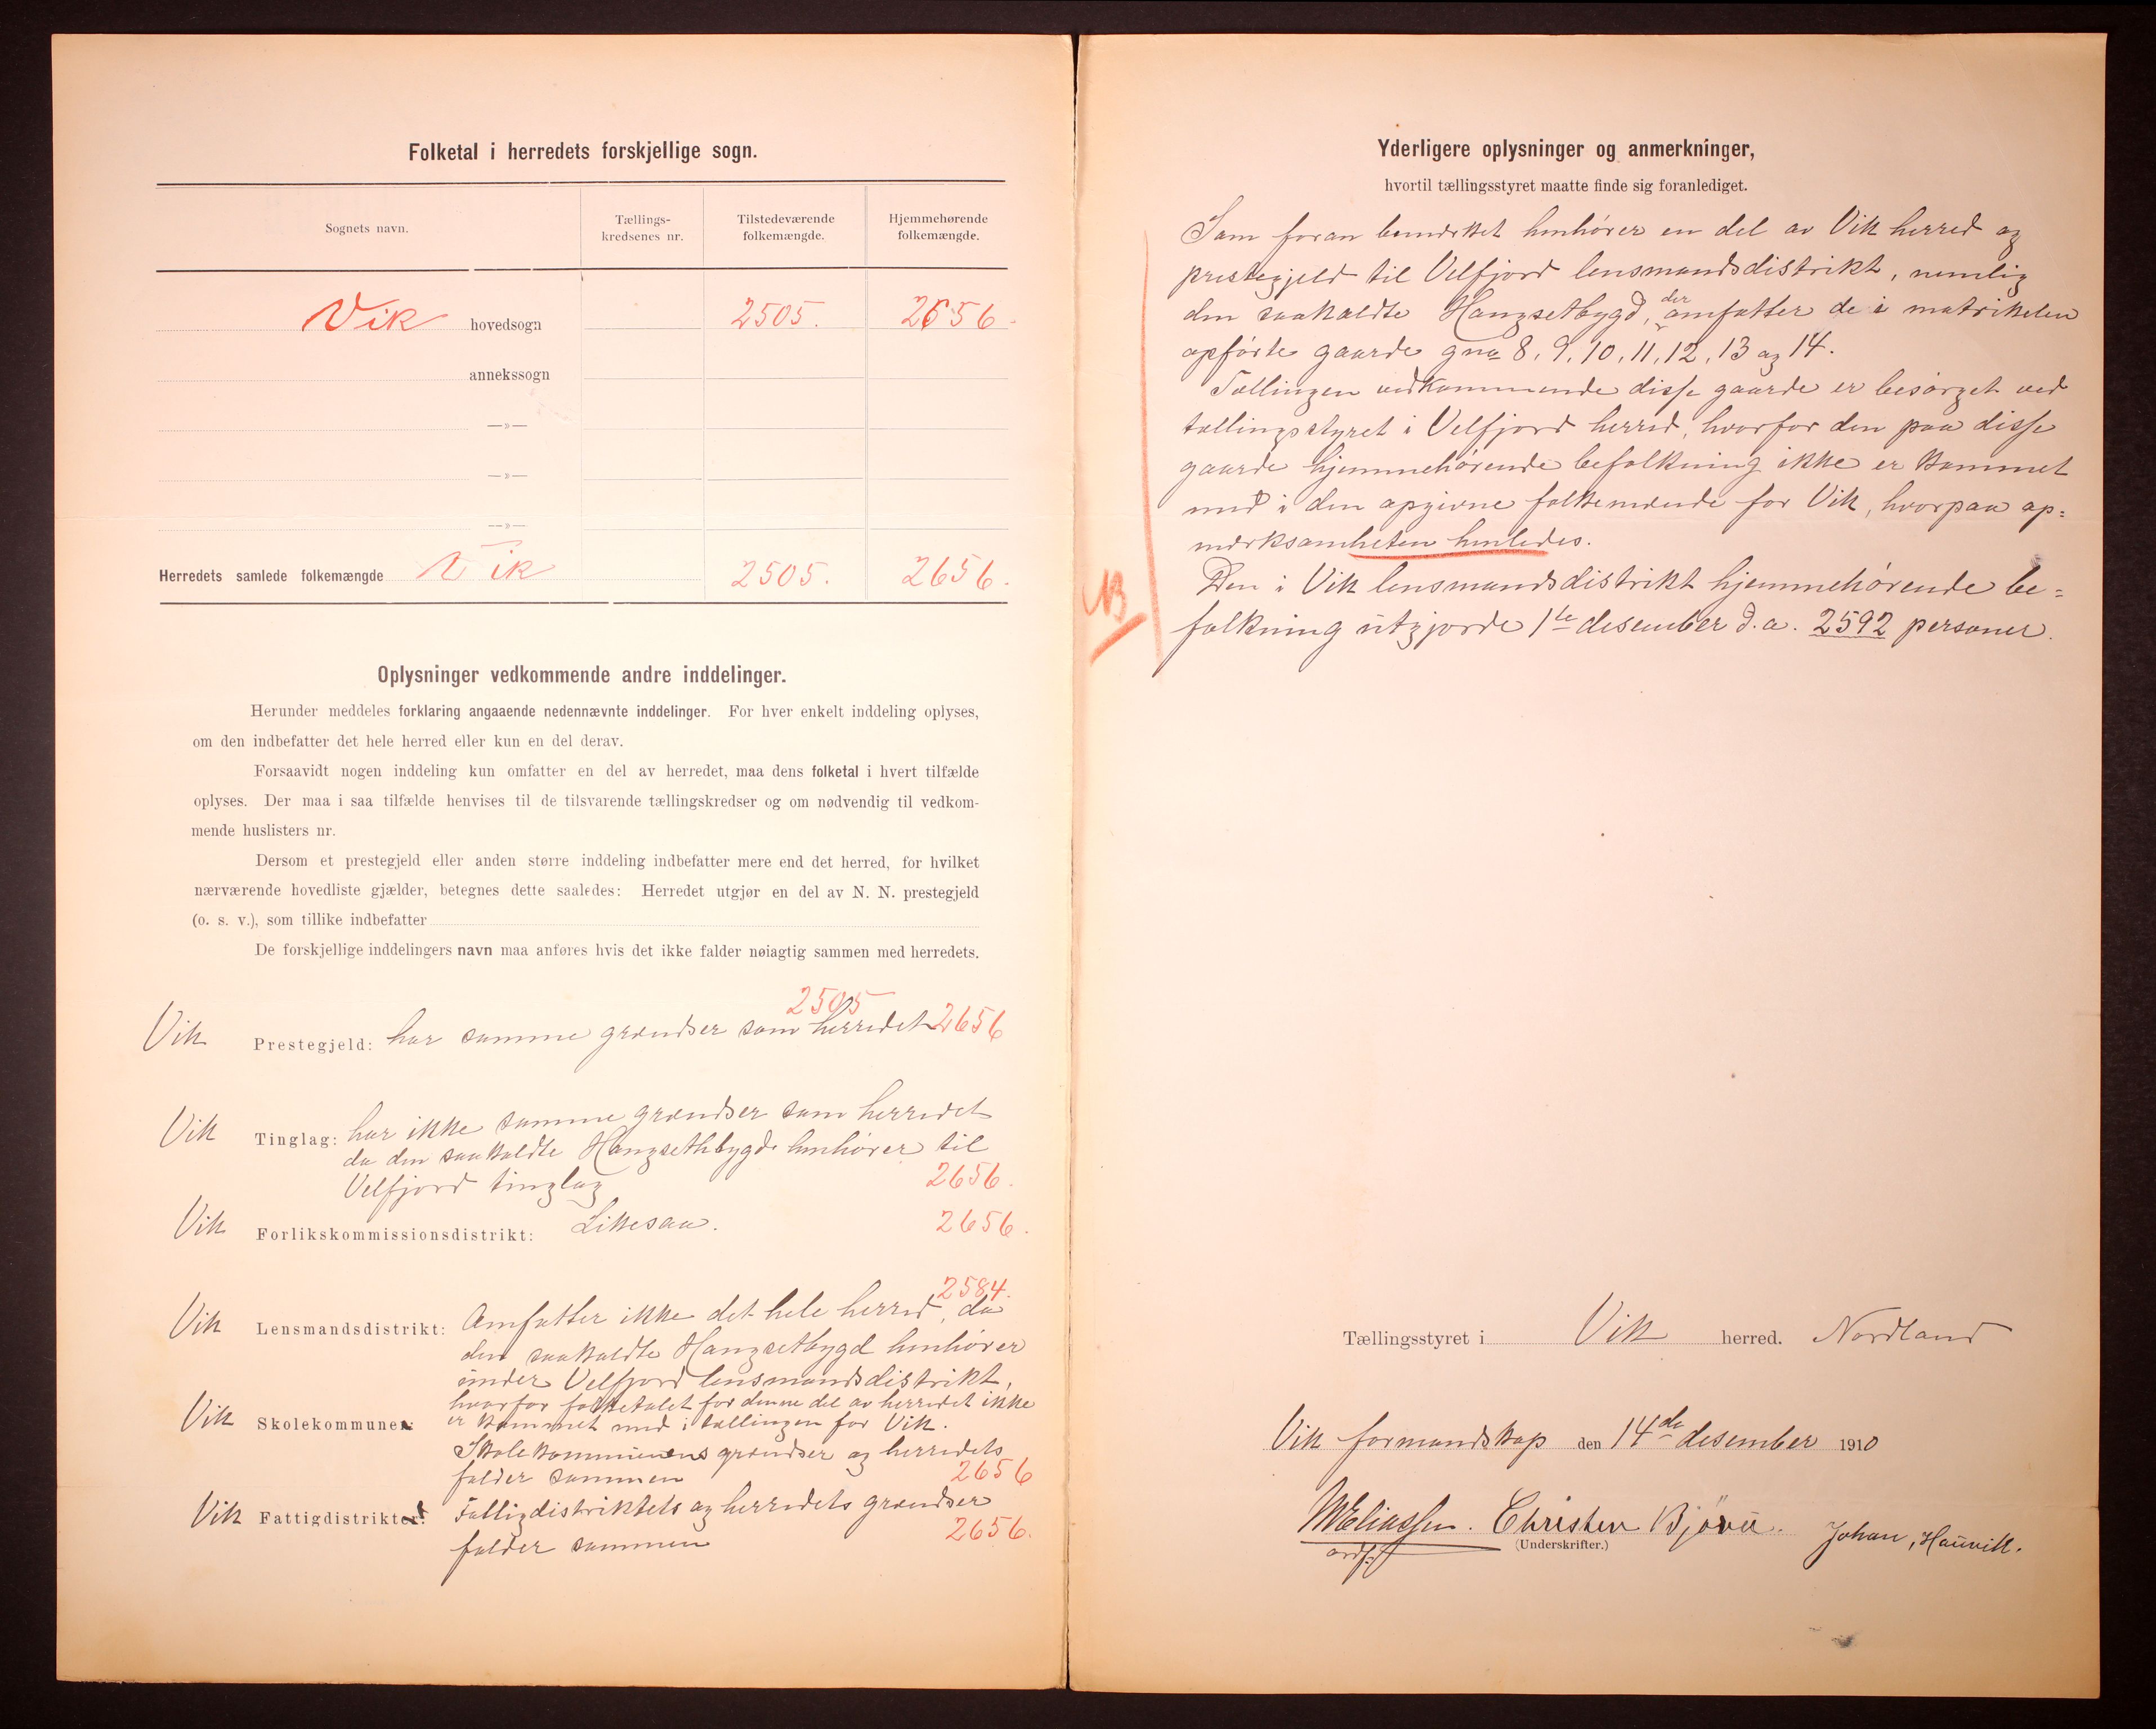 Folketal i herredets forskjellige sogn.
Sognets navn.
Tællings-
kredsenes nr.
Tilstedeværende
folkemængde.
Hjemmehørende
folkemængde.
Vik hovedsogn 2505. 2656.
annekssogn
—»—
—»—
—»—
Herredets samlede folkemængde Vik 2505. 2656.
Oplysninger vedkommende andre inddelinger.
Herunder meddeles forklaring angaaende nedennævnte inddelinger. For hver enkelt inddeling oplyses,
om den indbefatter det hele herred eller kun en del derav.
Forsaavidt nogen inddeling kun omfatter en del av herredet, maa dens folketal i hvert tilfælde
oplyses. Der maa i saa tilfælde henvises til de tilsvarende tællingskredser og om nødvendig til vedkom-
mende huslisters nr.
Dersom et prestegjeld eller anden større inddeling indbefatter mere end det herred, for hvilket
nærværende hovedliste gjælder, betegnes dette saaledes: Herredet utgjør en del av N. N. prestegjeld
(o. s. v.), som tillike indbefatter
De forskjellige inddelingers navn maa anføres hvis det ikke falder nøiagtig sammen med herredets.
2505
Vik Prestegjeld: har samme grændser som herredet 2656
Vik Tinglag: har ikke samme grændser som herredet
da den saakaldte Hangsethbygd henhører til
Velfjord tinglag 2656.
Vik Forlikskommissionsdistrikt: Likesaa. 2656.
2584.
Vik Lensmandsdistrikt: Omfatter ikke det hele herred, da
den saakaldte Hangsetbygd henhører
under Velfjord lensmandsdistrikt,
hvorfor folketalet for denne del av herredet ikke
Vik Skolekommuner: er kommet med i tællingen for Vik.
Skolekommunens grændser og herredets
falder sammen 2656
Vik Fattigdistrikter: Fattigdistriktets og herredets grændser
falder sammen 2656.
Yderligere oplysninger og anmerkninger,
hvortil tællingsstyret maatte finde sig foranlediget.
Som foran bemerket henhører en del av Vik herred og
prestegjeld til Velfjord lensmandsdistrikt, nemlig
den saakaldte Hangsetbygd, der omfatter de i matrikelen
opførte gaarde gno 8, 9, 10, 11, 12, 13 og 14.
Tællingen vedkommende disse gaarde er besørget ved
tællingsstyret i Velfjord herred, hvorfor den paa disse
gaarde hjemmehørende befolkning ikke er kommet
med i den opgivne folkemænde for Vik, hvorpaa op=
merksamheten henledes.
Den i Vik lensmandsdistrikt hjemmehørende be=
folkning utgjorde 1ste desember d.a. 2592 personer.
NB
Tællingsstyret i Vik herred. Nordland
Vik formandskap den 14de desember 1910
MEliassen. Christen Bjøru. Johan, Hauvik.
ordf.
(Underskrifter.)